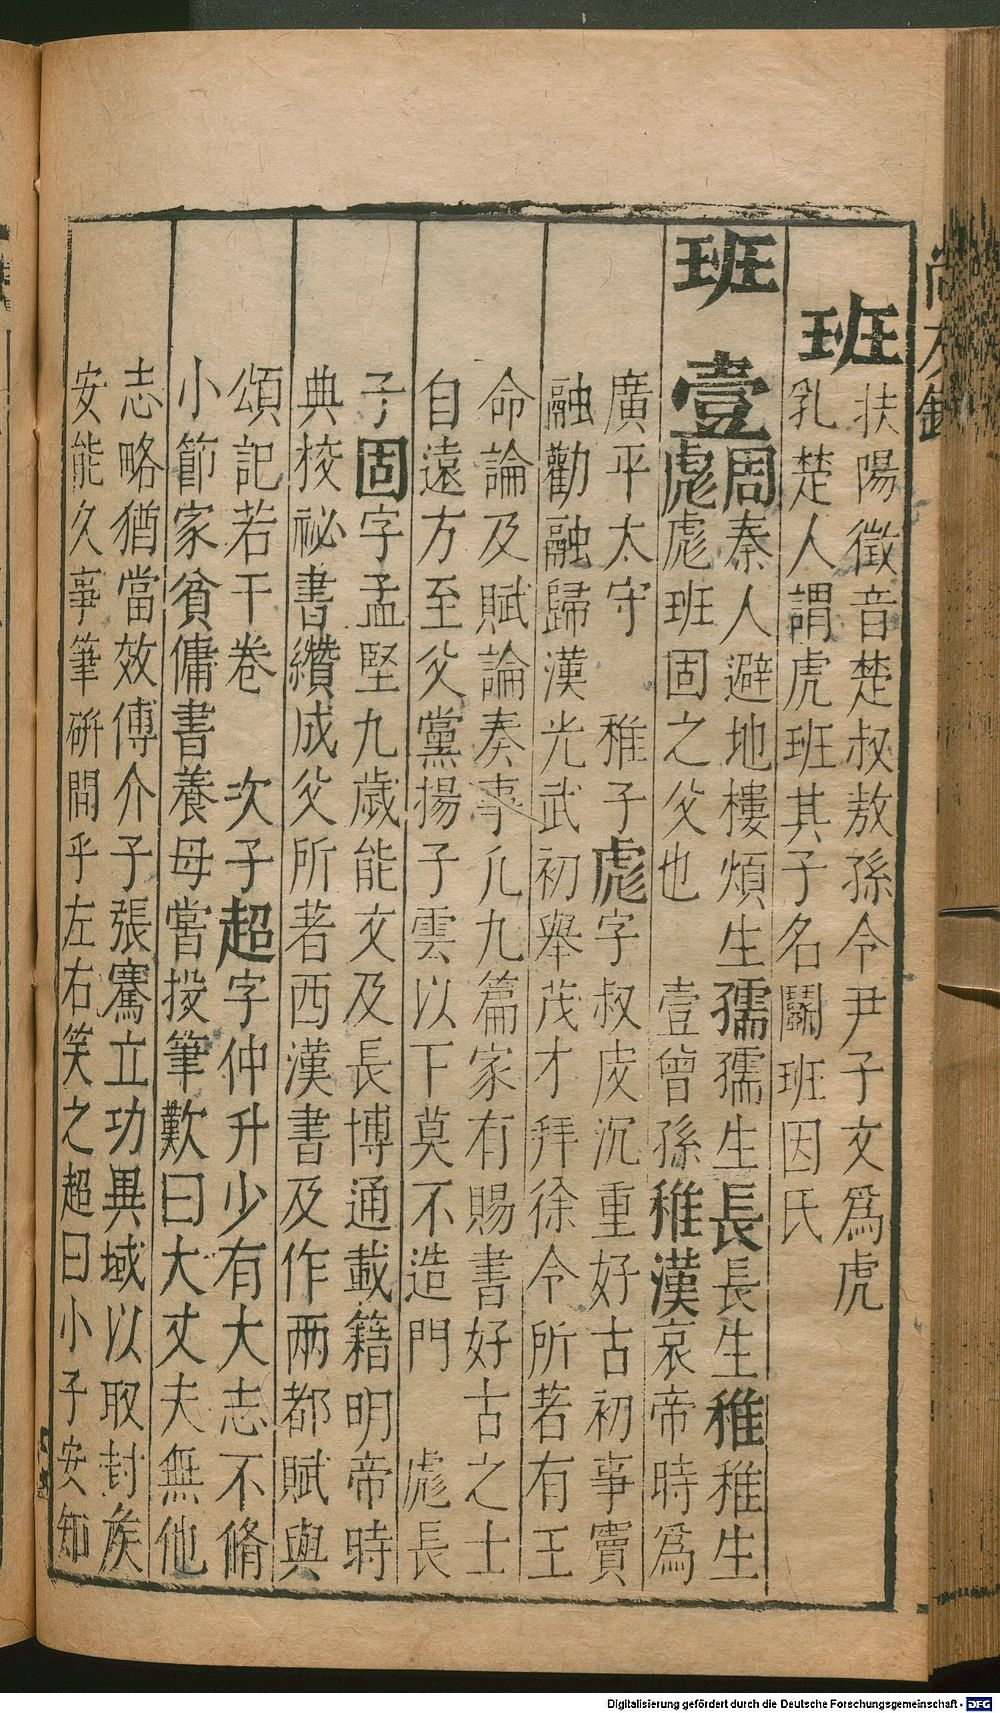 班
扶陽徵音楚叔敖孫令尹子文爲虎
乳楚人謂虎班其子名鬭班因氏
班壹周秦人避地樓煩生孺孺生長長生稚稚生
彪彪班固之父也　壹曾孫稚漢哀帝時爲
廣平太守　稚子彪字叔皮沉重好古初事竇
融勸融歸漢光武初舉茂才拜徐令所著有王
命論及賦論奏事凡九篇家有賜書好古之士
自遠方至父黨揚子雲以下莫不造門　彪長
子固字孟堅九歲能文及長博通載籍明帝時
典校祕書纘成父所著西漢書及作兩都賦與
頌記若干卷　次子超字仲升少有大志不脩
小節家貧傭書養母嘗投筆歎曰大丈夫無他
志略猶當效傅介子張騫立功異域以取封矦
安能久事筆硏間乎左右笑之超曰小子安知
Digitalisierung gefördert durch die Deutsche Forschungsgemeinschaft - DFG